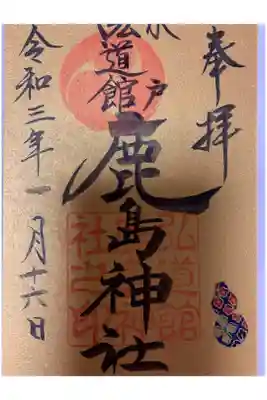 奉拝
水戸
弘道館
鹿島神社
令和三年一月十六日
弘道館鹿島神社之印